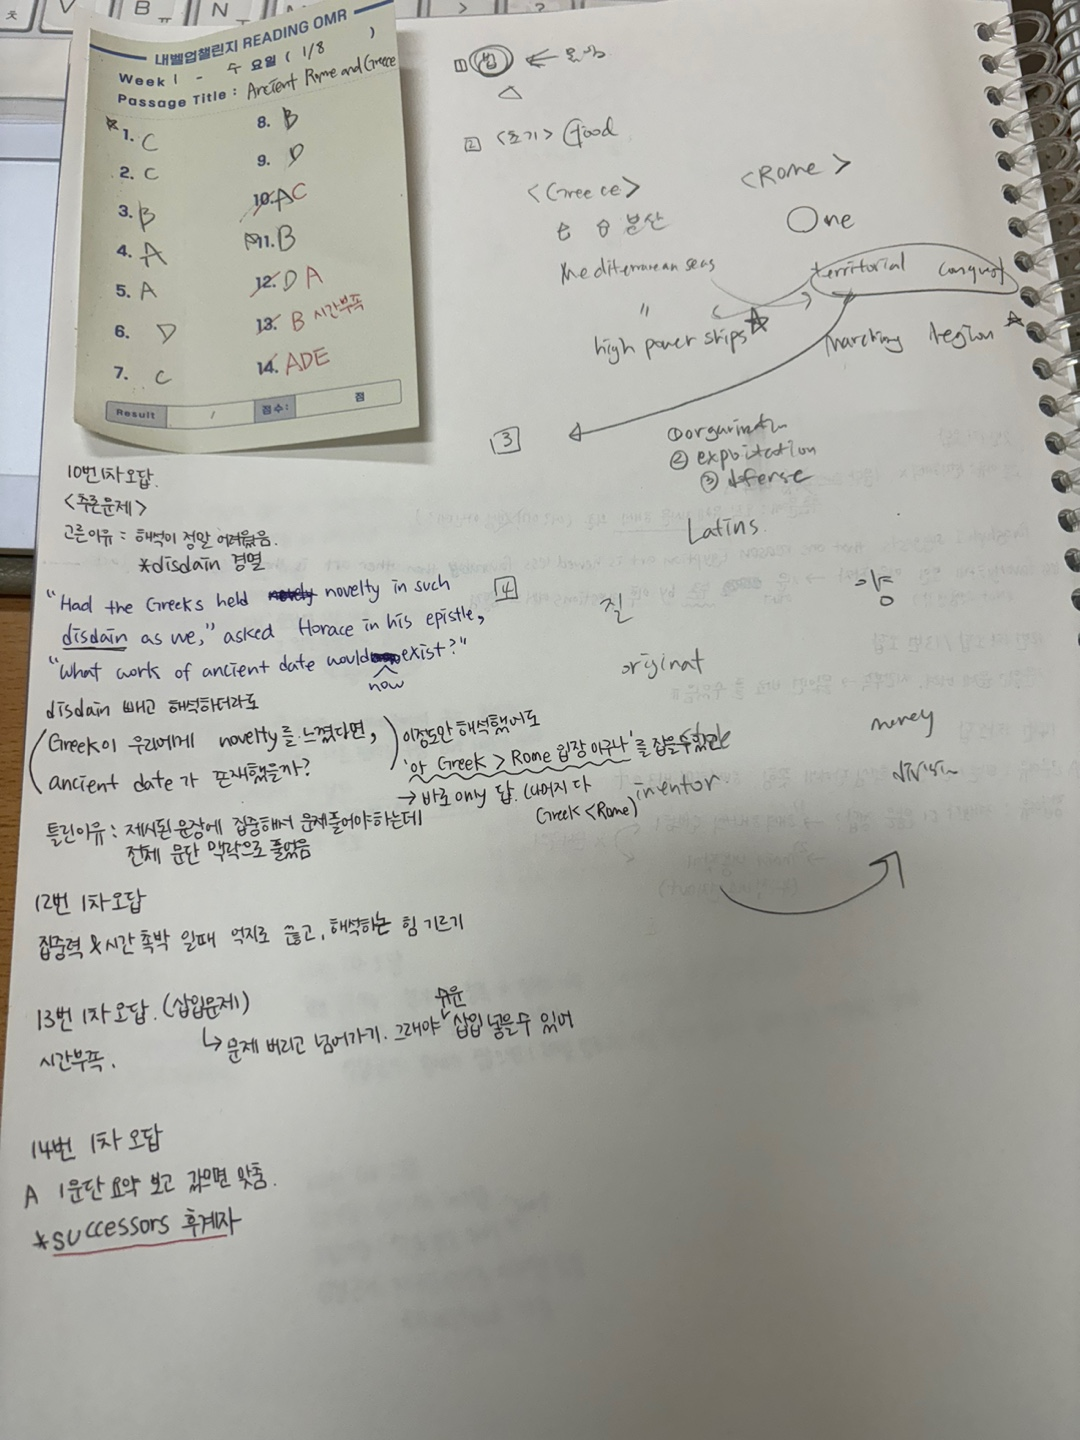 내벨업챌린지 READING OMR
Week 1 - 수 요일 ( 1/8 )
Passage Title : Ancient Rome and Greece
1. C
2. C
3. B
4. A
5. A
6. D
7. C
8. B
9. D
10. A C
11. B
12. D A
13. B 시간부족
14. ADE
Result / 점수: 점
1 법
2 <초기> food
<Greece> <Rome>
분산 One
Mediterranean seas territorial conquest
" high power ships marching legion
3
② exploitation
③ defense
Latins.
4 질 양
originat money
inventor.
10번 1차 오답.
<추론문제>
고른이유 : 해석이 정말 어려웠음.
*disdain 경멸
"Had the Greeks held novelty in such
disdain as we," asked Horace in his epistle,
"What work of ancient date would now exist?"
disdain 빼고 해석하더라도
(Greek이 우리에게 novelty를 느꼈다면,
ancient date가 존재했을까?
)이정도만 해석했어도
'아 Greek > Rome 입장 이구나'를 잡을수
→ 바로 only 답. (나머지 다
Greek < Rome)
틀린이유 : 제시된 문장에 집중해서 문제풀어야하는데
전체 문단 맥락으로 풀었음
12번 1차 오답
집중력 & 시간 촉박 일때 억지로 끊고, 해석하는 힘 기르기
13번 1차 오답. (삽입문제)
시간부족.
↳ 문제 버리고 넘어가기. 그래야 삽입 넣을수 있어
14번 1차 오답
A 1문단 요약 보고 갔으면 맞춤.
*successors 후계자